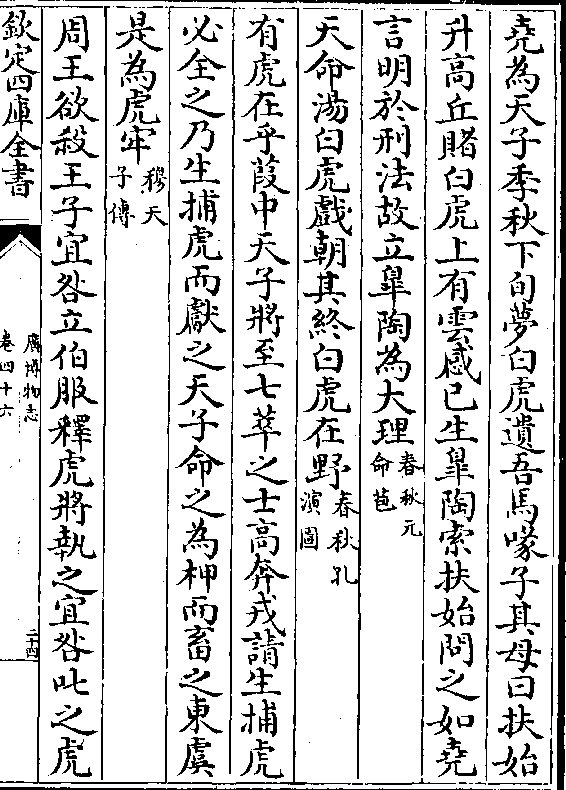 堯為天子季秋下旬夢白虎遺吾馬喙子其母曰扶始
升高丘睹白虎上有雲感已生臯陶索扶始問之如堯
言明於刑法故立臯陶為大理春秋元命苞
天命湯白虎戲朝其終白虎在野春秋孔演圖
有虎在乎葭中天子將至七萃之士高奔戎請生捕虎
必全之乃生捕虎而獻之天子命之為柙而畜之東虞
是為虎牢穆天子傳
周王欲殺王子宜咎立伯服釋虎將執之宜咎叱之虎
欽定四庫全書
廣博物志
卷四十六
二十四